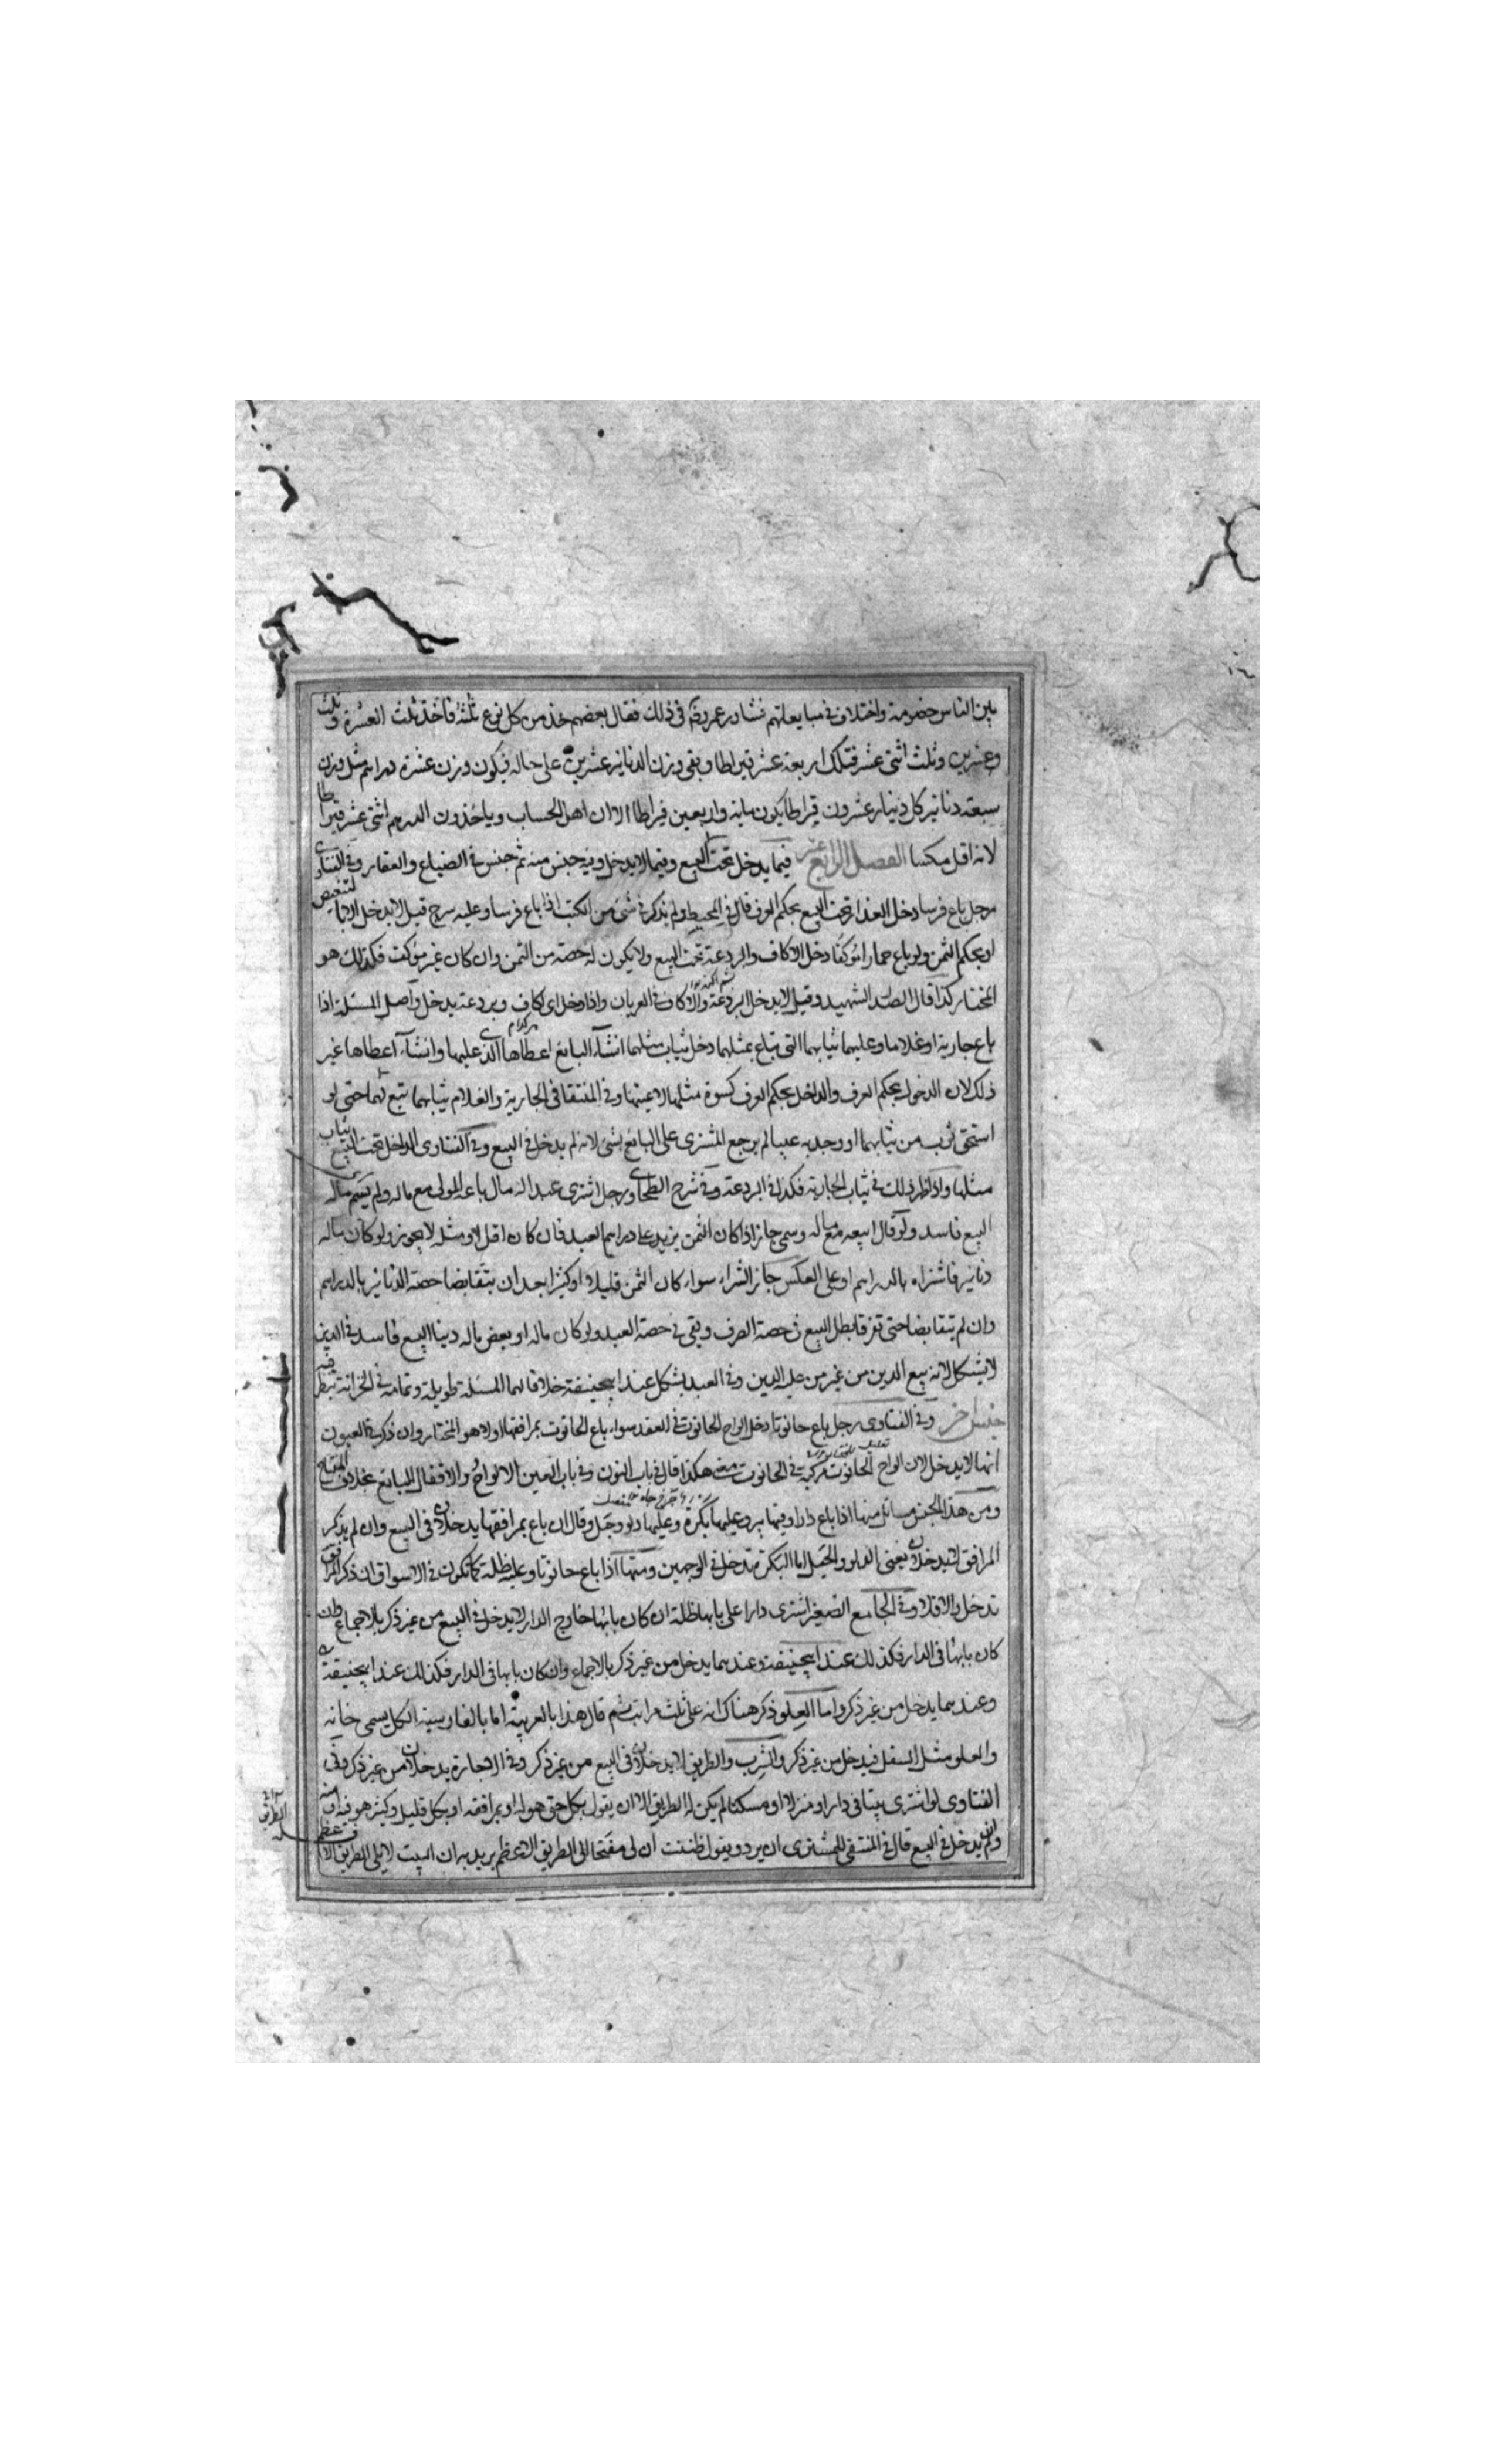 بين الناس خصومة واختلاف في مبايعاتهم فشاور عمر رضه في ذلك فقال بعضهم خذ من كل نوع ثلثه فاخذ ثلث العشرة وثلث
وعشرين وثلث اثنى عشر فتلك اربعة عشر قيراطا وبقى وزن الدنانير عشرين على حاله فيكون وزن عشرة دراهم مثل وزن
سبعة دنانير كل دينار عشرون قيراطا يكون ماية واربعين قيراطا الا ان اهل الحساب وياخذون الدرهم اثنى عشر قيراطا
لانه اقل مكسا الفصل الرابع عشر فيما يدخل تحت البيع وفيما لا يدخل وفيه جنس منه ثم جنس في الضياع والعقار وفي الفتاوى
رجل باع فرسا دخل العذار تحت البيع بحكم العرف قال في المحيط ولم يذكر في شئ من الكتب اذا باع فرسا وعليه سرج قيل لا يدخل الا بالتنصيص
او بحكم الثمن ولو باع حمارا موكفا دخل الاكاف والبردعة تحت البيع ولا يكون له حصة من الثمن وان كان غير موكف فكذلك هو
المختار كذا قال الصدر الشهيد وقيل لا يدخل البردعة والاكاف في العريان واذا دخل اى اكاف وبردعة يدخل واصل المسئلة اذا
باع جارية او غلاما وعليهما ثيابهما التى تباع بمثلهما دخل ثياب مثلهما ان شاء البايع اعطاها الذى عليهما وان شاء اعطاها غير
ذلك لان الدخول بحكم العرف والداخل بحكم العرف كسوة مثلها لا عينها وفي المنتقا في الجارية والغلام ثيابهما تبع لهما حتى لو
استحق ثوب من ثيابهما او وجد به عيبا لم يرجع المشترى على البائع بشئ لانه لم يدخل في البيع وفي الفتاوى الداخل تحت البيع ثياب
مثلها واذا ظهر ذلك في ثياب الجارية فكذا في البردعة وفي شرح الطحاوى رجل اشترى عبدا له مال باعه المولى مع ماله ولم يسم ماله
البيع فاسد ولو قال ابيعه مع ماله وسمى جاز اذا كان الثمن يزيد على دراهم العبد فان كان اقل او مثله لا يجوز ولو كان ماله
دنانير فاشتراه بالدراهم او على العكس جاز الشراء سواء كان الثمن قليلا او كثيرا بعد ان يتقابضا حصة الدنانير بالدراهم
وان لم يتقابضا حتى تفرقا بطل البيع في حصة الصرف وبقى في حصة العبد ولو كان ماله او بعض ماله دينا البيع فاسد في الدين
لا يشكل لانه بيع الدين من غير من عليه الدين وفي العبد يشكل عند ابيحنيفة خلافا لهما المسئلة طويلة وتمامه في الخزانة ينظر فيه
جنس آخر وفي الفتاوى رجل باع حانوتا دخل الواح الحانوت في العقد سواء باع الحانوت بمرافقها او لا هو المختار وان ذكر في العيون
انها لا يدخل لان الواح الحانوت مركبة في الحانوت هكذا قال في باب النون وفي باب العين الالواح والاقفال للبائع بخلاف المفتاح
ومن هذا الجنس مسائل منها اذا باع دارا وفيها بير وعليها بكرة وعليها دلو وحبل وقال ان باع بمرافقها يدخلان في البيع وان لم يذكر
المرافق لا يدخلان يعنى الدلو والحبل اما البكرة تدخل في الوجهين ومنها اذا باع حانوتا وعليه ظلة كما تكون في الاسواق ان ذكر المرافق
تدخل والا فلا وفي الجامع الصغير اشترى دارا على بابها ظلة ان كان بابها خارج الدار لا يدخل في البيع من غير ذكر بالاجماع وان
كان بابها في الدار فكذلك عند ابيحنيفة وعندهما يدخل من غير ذكر بالاجماع وان كان بابها في الدار فكذلك عند ابيحنيفة
وعندهما يدخل من غير ذكر واما العلو ذكر هناك انه على ثلث مراتب ثم قال هذا بالعربية اما بالفارسية الكل يسمى خانه
والعلو مثل السفل فيدخل من غير ذكر والشرب والطريق لا يدخلان في البيع من غير ذكر وفي الاجارة يدخلان من غير ذكر وفي
الفتاوى لو اشترى بيتا في دار او منزلا او مسكنا لم يكن له الطريق الا ان يقول بكل حق هو له او بمرافقه او بكل قليل وكثير هو فيه او منه
ولم يدخل في البيع قال في المنتقى للمشترى ان يرد ويقول ظننت ان لى مفتحا الى الطريق الاعظم يريد به ان البيت لا يلى الطريق الا